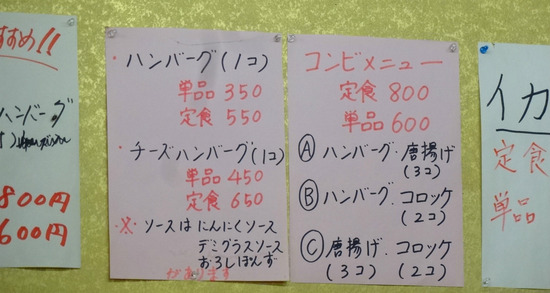 すすめ!!
ハンバーグ
800円
600円
・ハンバーグ(1コ)
単品 350
定食 550
・チーズハンバーグ(1コ)
単品 450
定食 650
・※ ソースは にんにくソース
デミグラスソース
おろしぽんず
があります
コンビメニュー
定食 800
単品 600
Ⓐ ハンバーグ・唐揚げ
(3コ)
Ⓑ ハンバーグ・コロッケ
(2コ)
Ⓒ 唐揚げ・コロッケ
(3コ) (2コ)
イカ
定食
単品